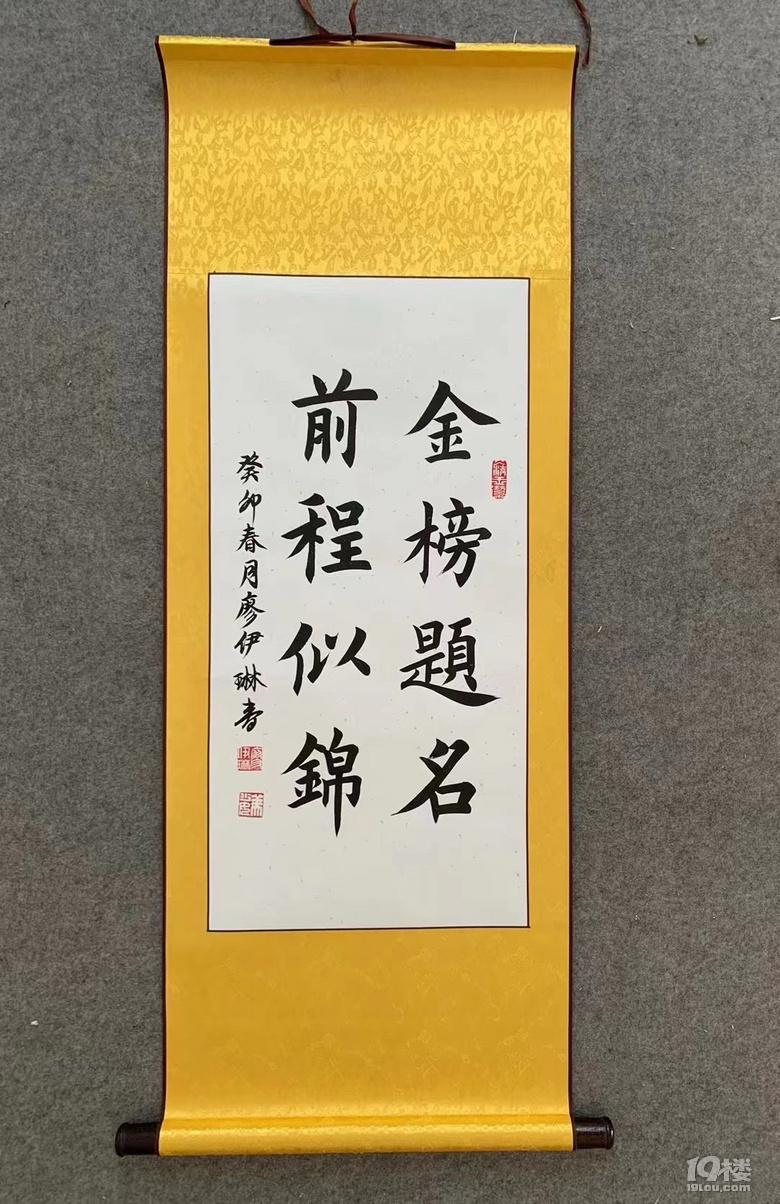 金榜题名
前程似錦
癸卯春月廖伊琳书
19楼
19lou.com